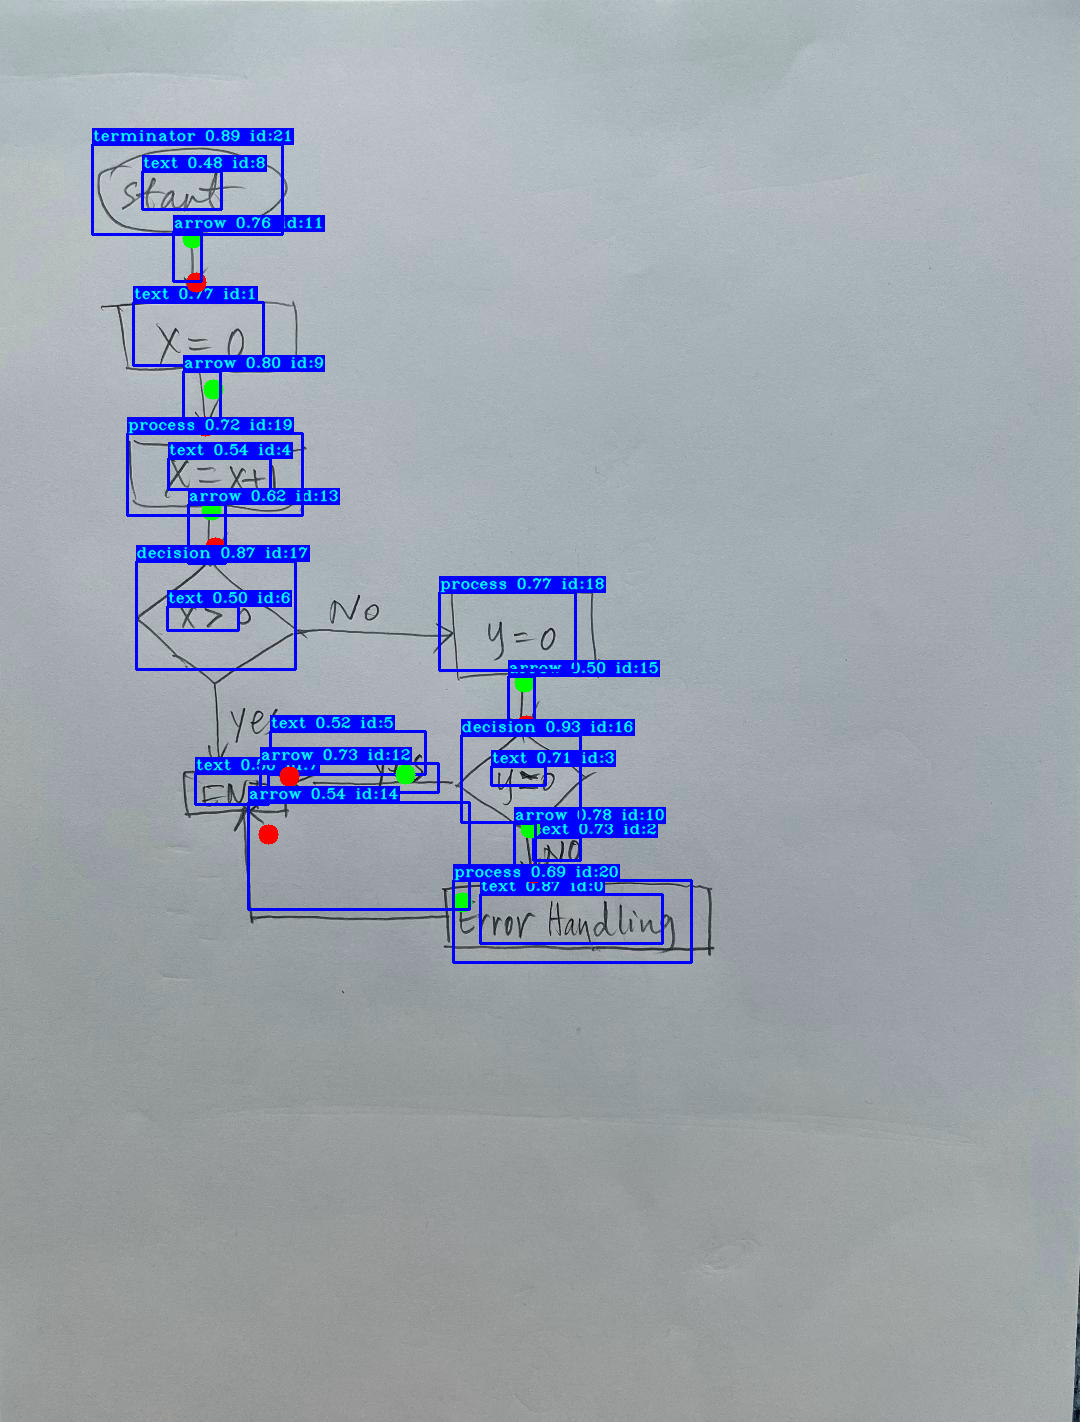 terminator 0.89 id:21
text 0.48 id:8
start
arrow 0.76 id:11
text 0.77 id:1
X = 0
arrow 0.80 id:9
process 0.72 id:19
text 0.54 id:4
X = x+1
arrow 0.62 id:13
decision 0.87 id:17
text 0.50 id:6
X > 0
No
process 0.77 id:18
y = 0
arrow 0.50 id:15
yes
text 0.52 id:5
decision 0.93 id:16
arrow 0.73 id:12
text 0.71 id:3
yes
END
arrow 0.54 id:14
arrow 0.78 id:10
text 0.73 id:2
NO
process 0.69 id:20
text 0.87 id:0
Error Handling